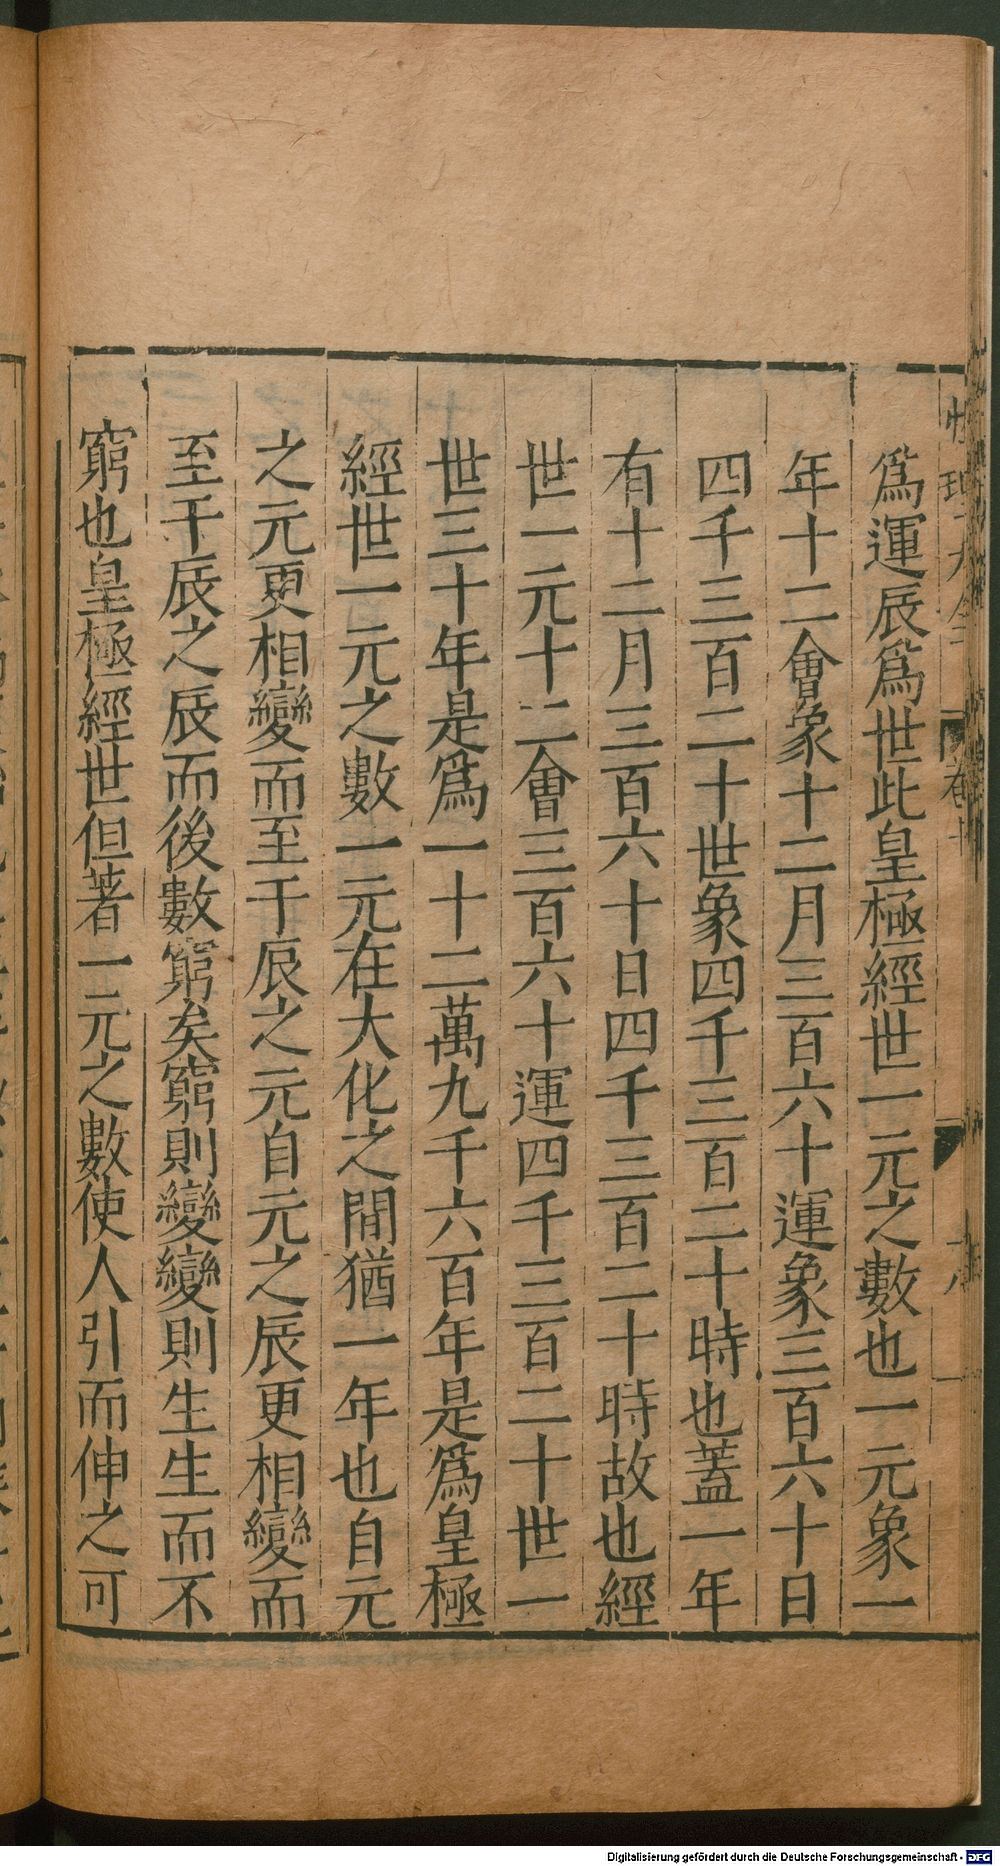 性理大全
卷十
十八
爲運辰爲世此皇極經世一元之數也一元象一
年十二會象十二月三百六十運象三百六十日
四千三百二十世象四千三百二十時也蓋一年
有十二月三百六十日四千三百二十時故也經
世一元十二會三百六十運四千三百二十世一
世三十年是爲一十二萬九千六百年是爲皇極
經世一元之數一元在大化之間猶一年也自元
之元更相變而至于辰之元自元之辰更相變而
至于辰之辰而後數窮矣窮則變變則生生而不
窮也皇極經世但著一元之數使人引而伸之可
Digitalisierung gefördert durch die Deutsche Forschungsgemeinschaft - DFG